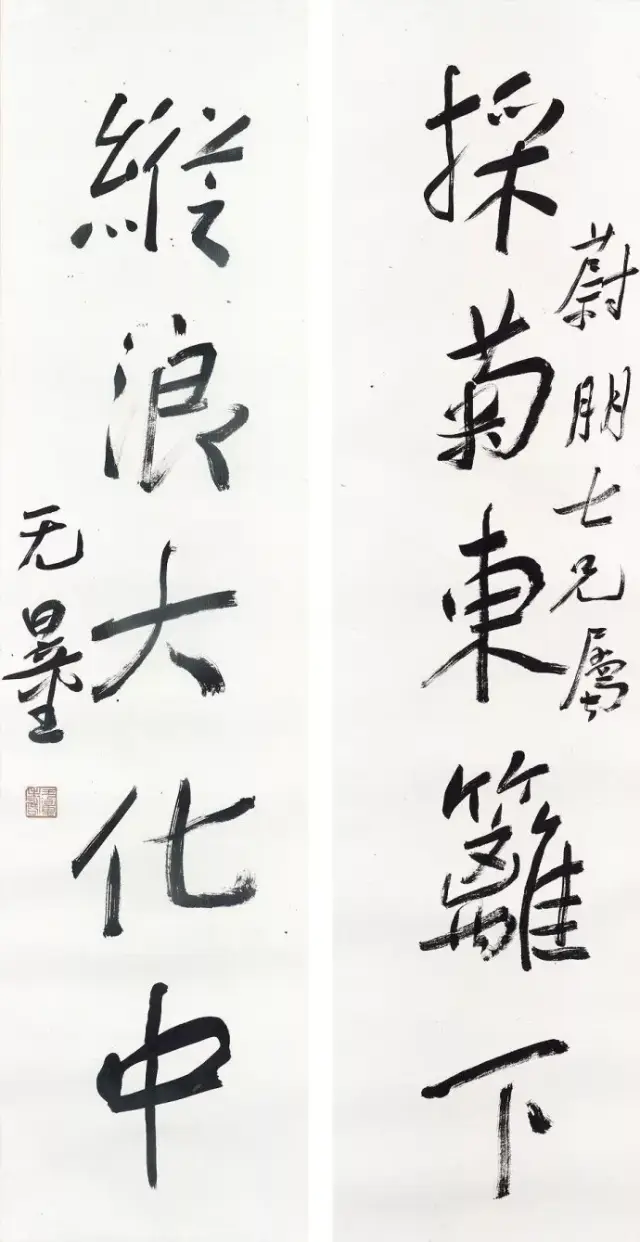 採菊東籬下
蔚朋七兄屬
縱浪大化中
无量